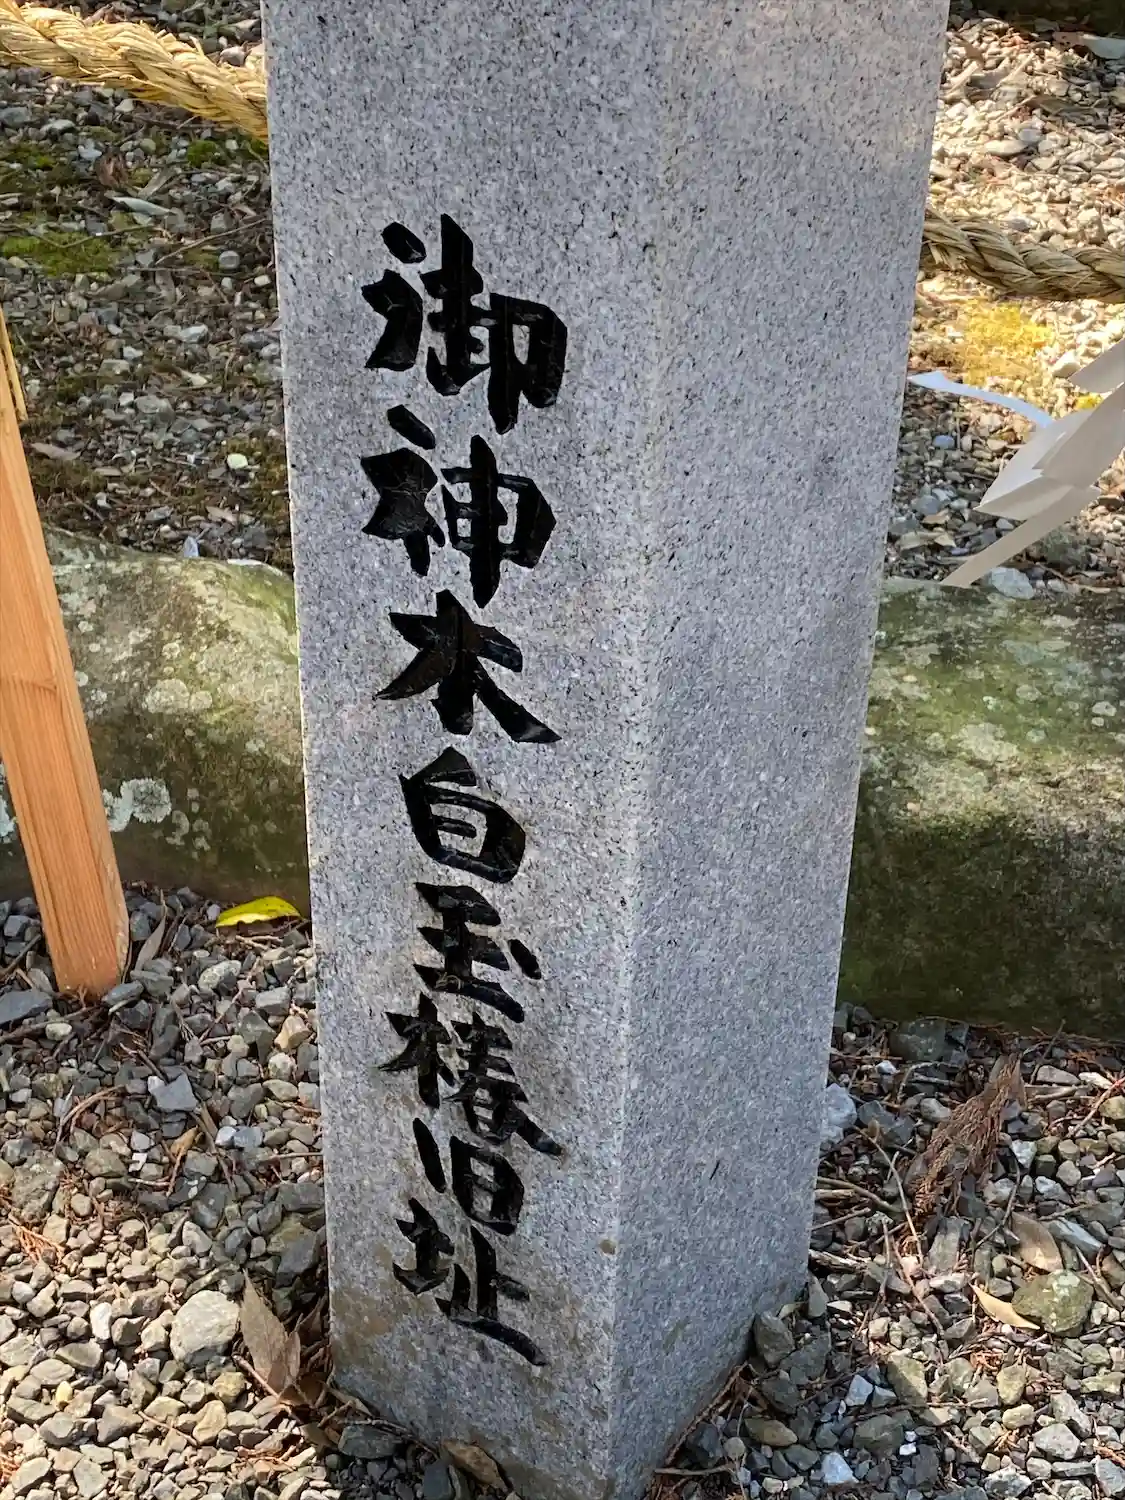 御神木白玉椿旧址